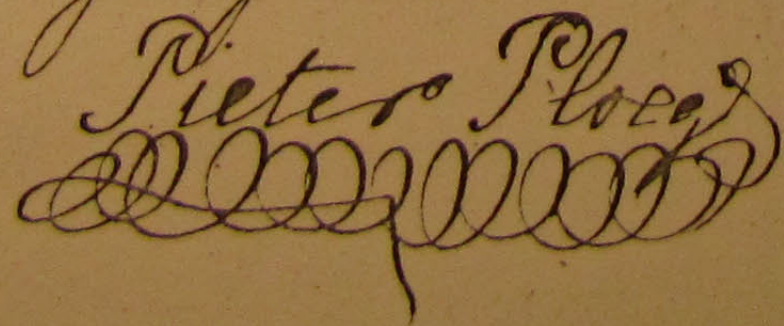 Pieter Ploeg